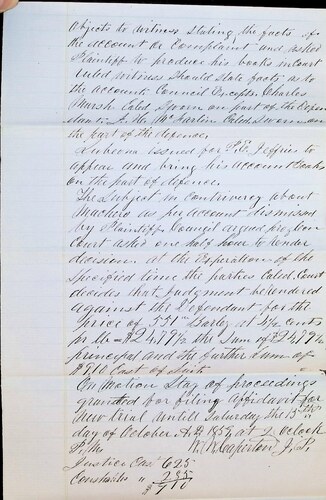 objects to witness stating the facts of
the account or Complaint and asked
Plaintiff to produce his books in Court
ruled witness should state facts as to
the account. Council Excepts. Charles
Marsh Caled Sworn on part of the Defen
dant. Mc Caled Sworn on
the part of the defence
issued for Jeffries to
appear and bring his account Books
on the part of defence.
The Subject in controversy about
as per account dismissed
by Plaintiffs Council argued pro & con
Court asked one half hour to render
decision at the Expiration of the
Specified time the parties Caled. Court
decides that Judgment be rendered
against the Defendant for the
price of Barley at 4½ cents
per lb = $24,79½ the Sum of $24,79½
principal and the further Sum of
Cost of Suit
On Motion Stay of proceedings
granted for filing Affidavit for
New trial untill Saturday the 15th
day of October A.D. 1859, at 2 oclock
P.M. J.P.
Justice Cost 6 25
Constables "